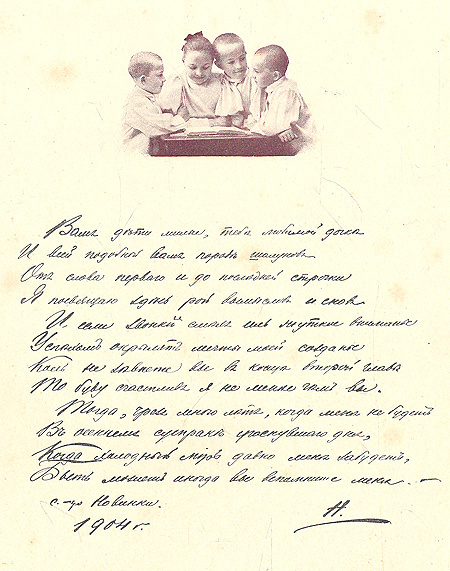 Вамъ дѣти милые, тебѣ любимой дочкѣ
И всей подобной вамъ породѣ шалуновъ
Отъ слова перваго и до последней строчки
Я посвящаю здѣсь рой вымысловъ и сновъ
И если звонкій смѣхъ иль чуткое вниманье
Успѣхомъ окрылятъ мечты моей созданье
Коль не зѣвнете вы въ концѣ второй главы
То буду счастливъ я не менѣе чѣмъ вы.
Тогда, чрезъ много лѣтъ, когда меня не будетъ
Въ осеннемъ сумракѣ угаснувшаго дня,
Когда холодный міръ давно меня забудетъ,
Быть можетъ иногда вы вспомните меня. –
с-цо Новинки.
1904 г. Н.